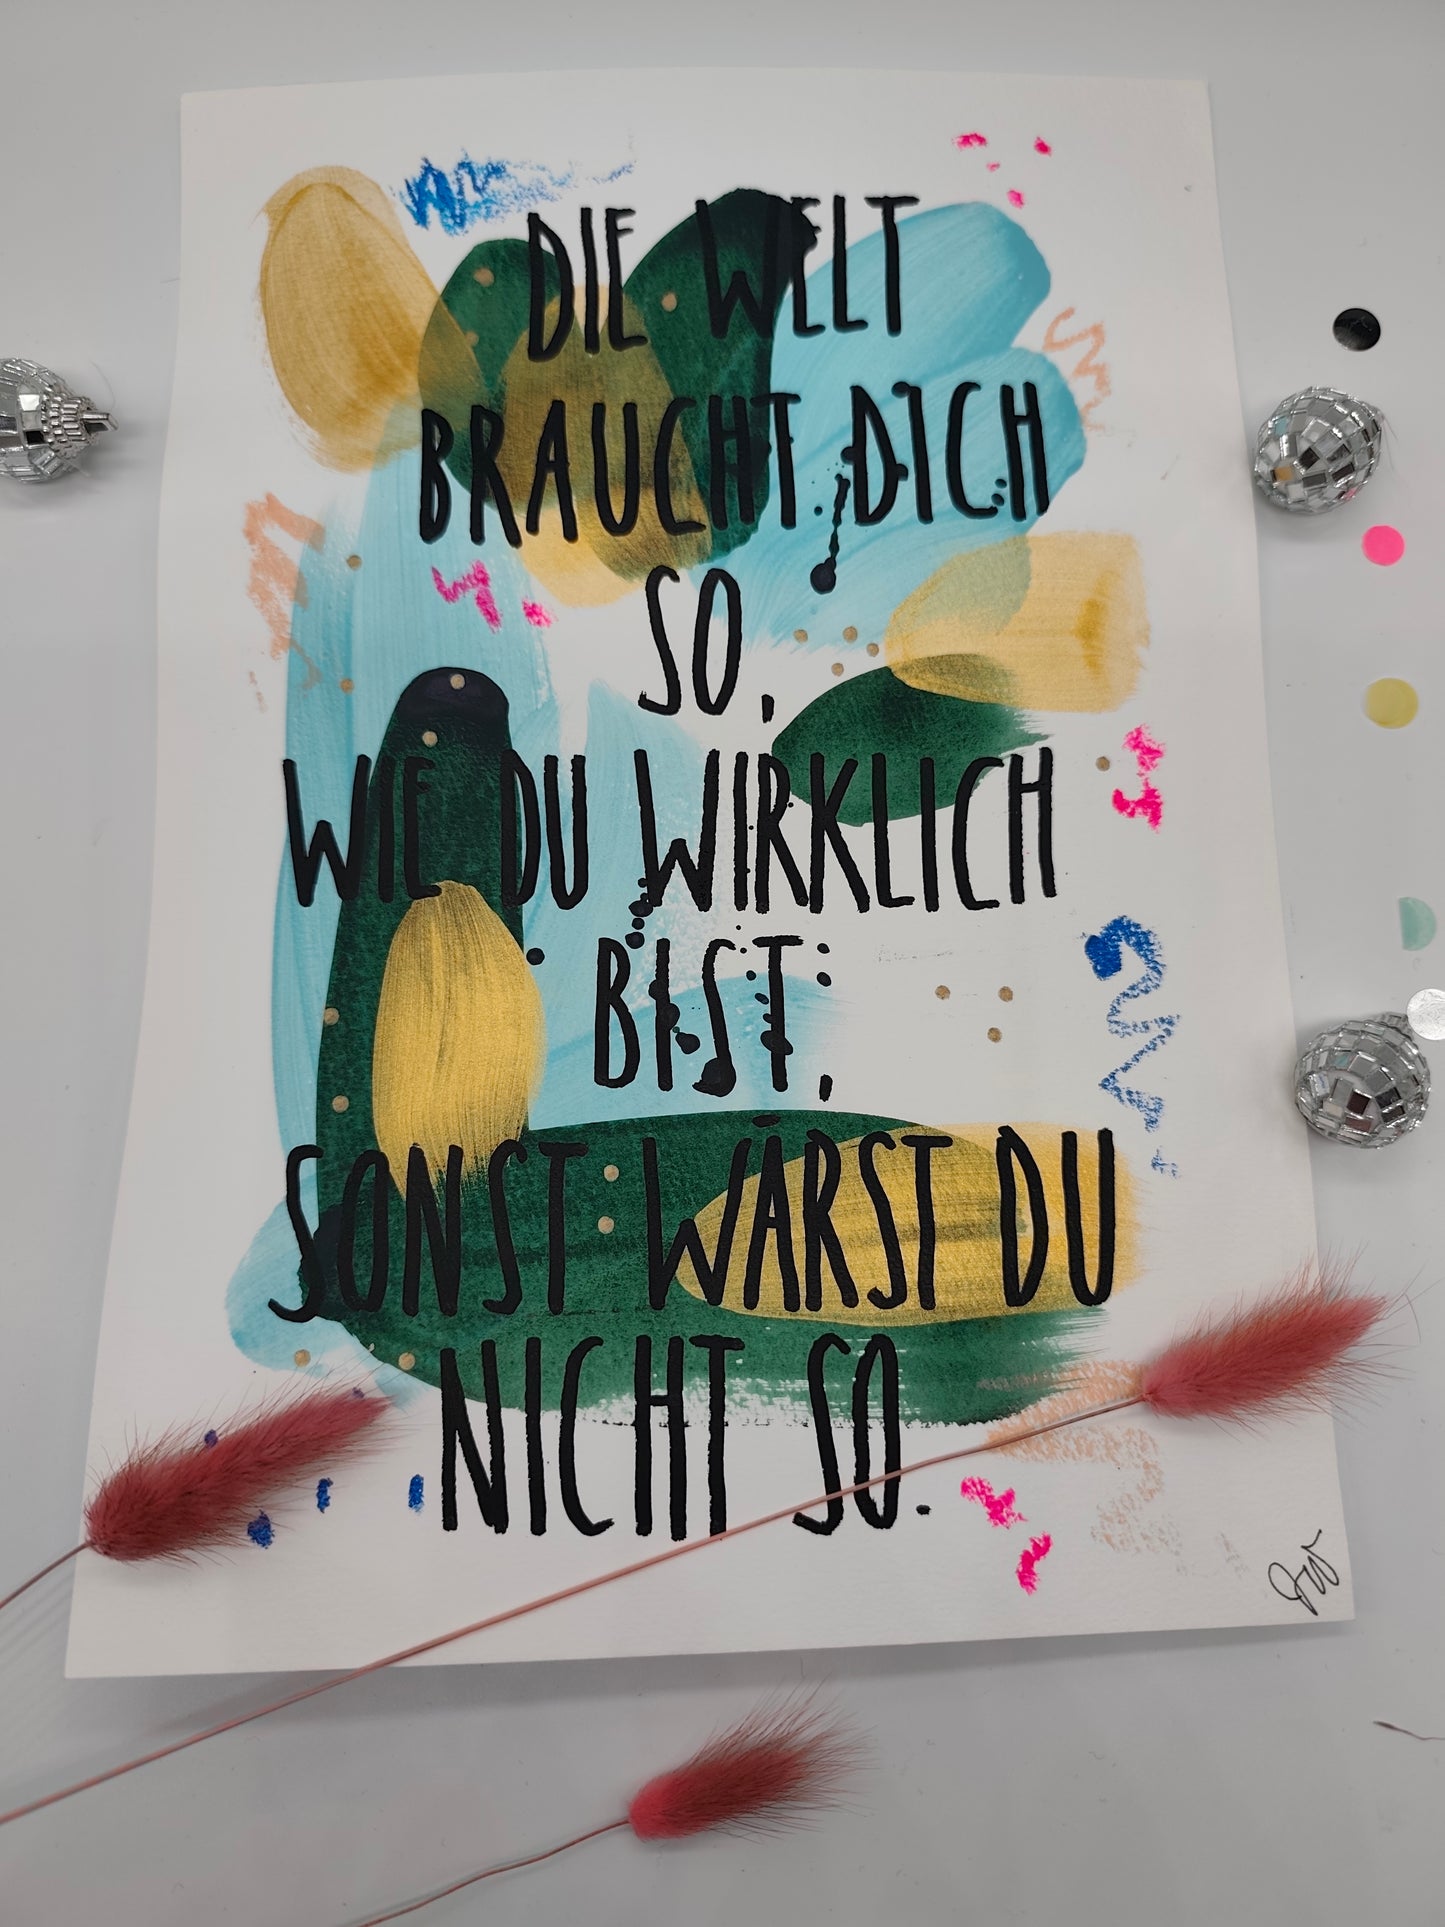 DIE WELT
BRAUCHT DICH
SO,
WIE DU WIRKLICH
BIST,
SONST WÄRST DU
NICHT SO.